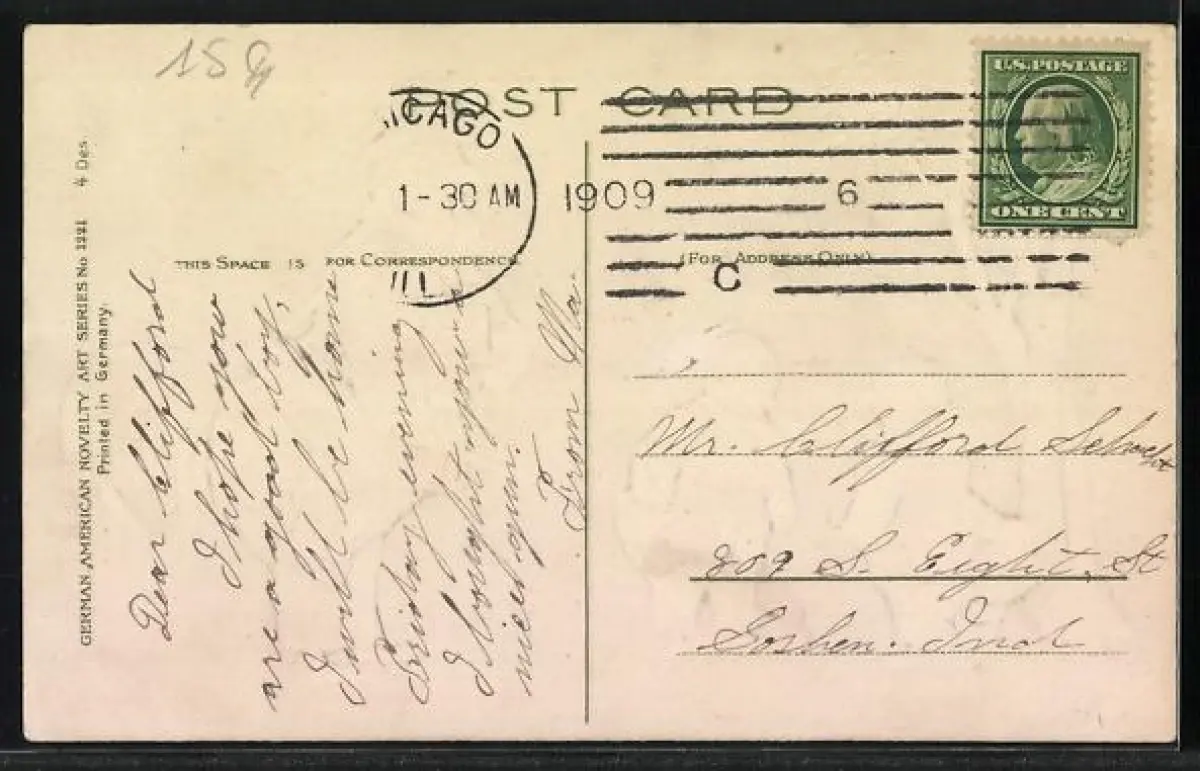 POST CARD
U.S.POSTAGE
ONE CENT
CHICAGO
1-30 AM
1909
6
ILL
C
THIS SPACE IS FOR CORRESPONDENCE
(FOR ADDRESS ONLY)
GERMAN AMERICAN NOVELTY ART SERIES No 1221 4 Des.
Printed in Germany.
Dear Clifford
I hope you
are a good boy,
I will be home
Friday evening
I bought you a
nice
From Ma.
Mr. Clifford
809 S. Eight, St
Goshen. Ind